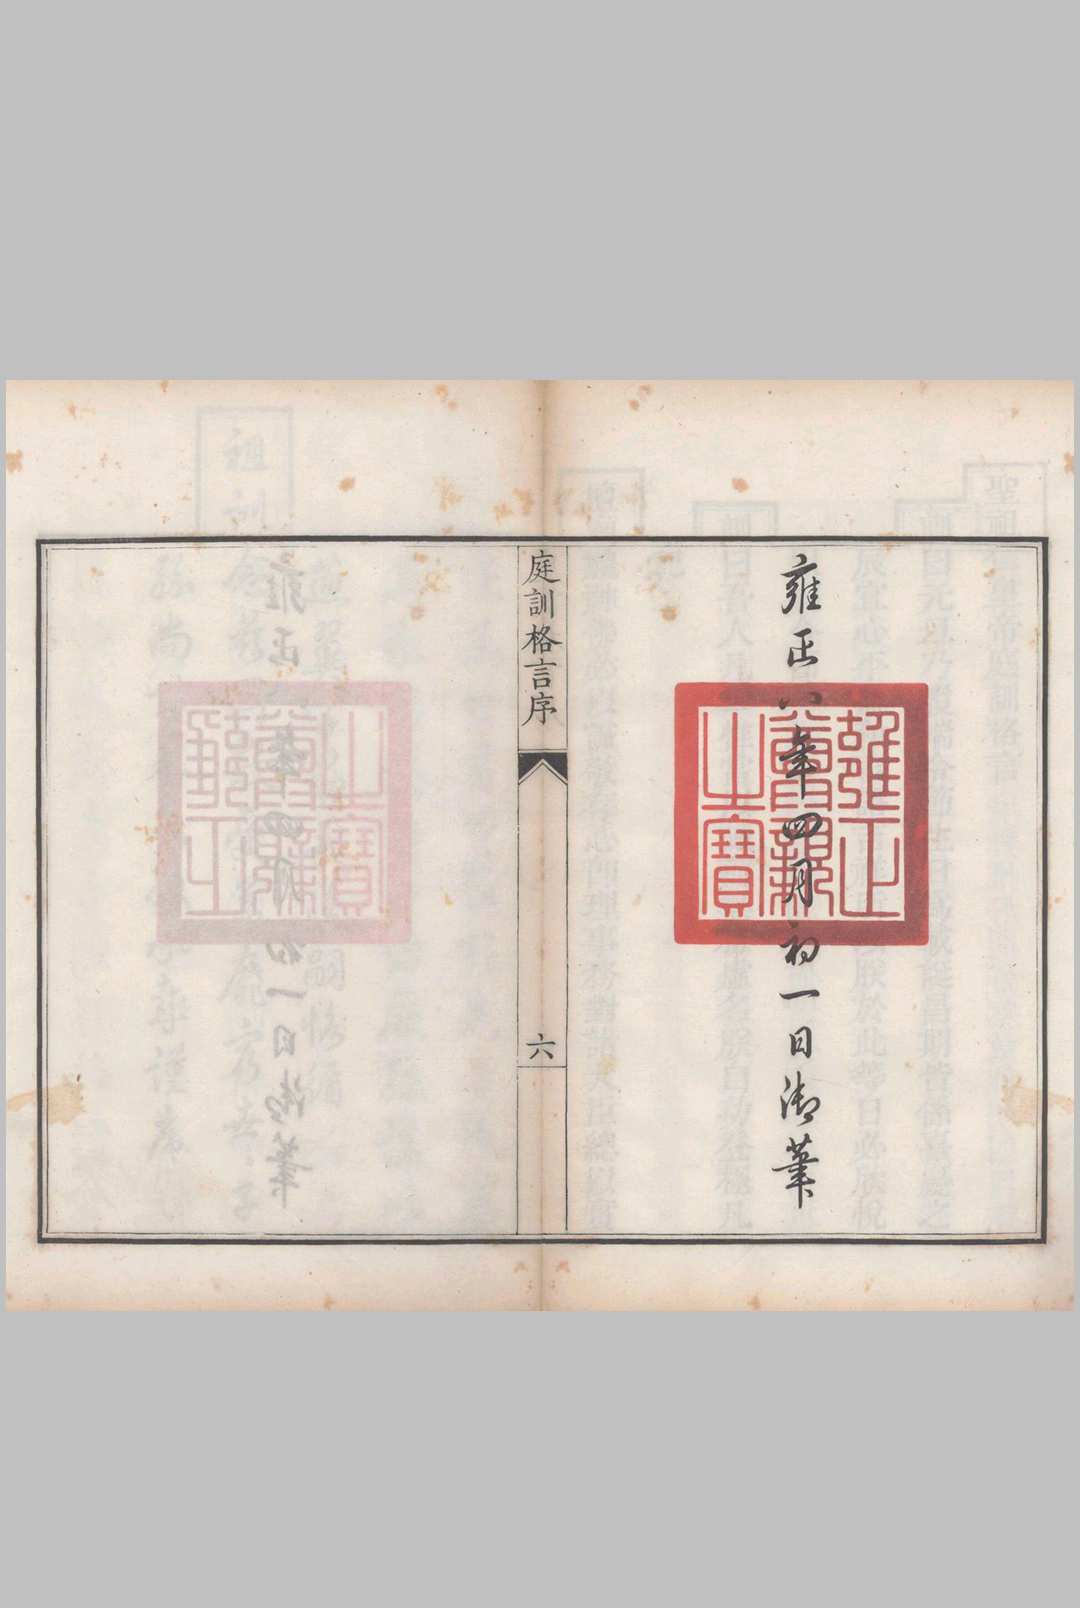 雍正八年四月初一日御筆
雍正
尊親
之寶
庭訓格言序
六